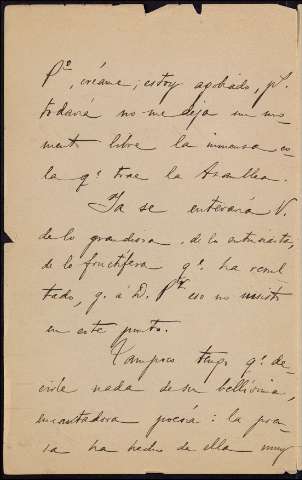 Po, créame; estoy agobiado, pq.
todavía no me deja un mo-
mento libre la inmensa co-
la q. trae la Asamblea.
Ya se enteraría V.
de lo grandiosa, de lo entusiasta,
de lo fructífera q. ha resul
tado, q. á D. Gs. eso no insisto
en este punto.
Tampoco tengo q. de-
cirle nada de su bellísima,
encantadora poesía: la pren-
sa ha hecho de ella muy